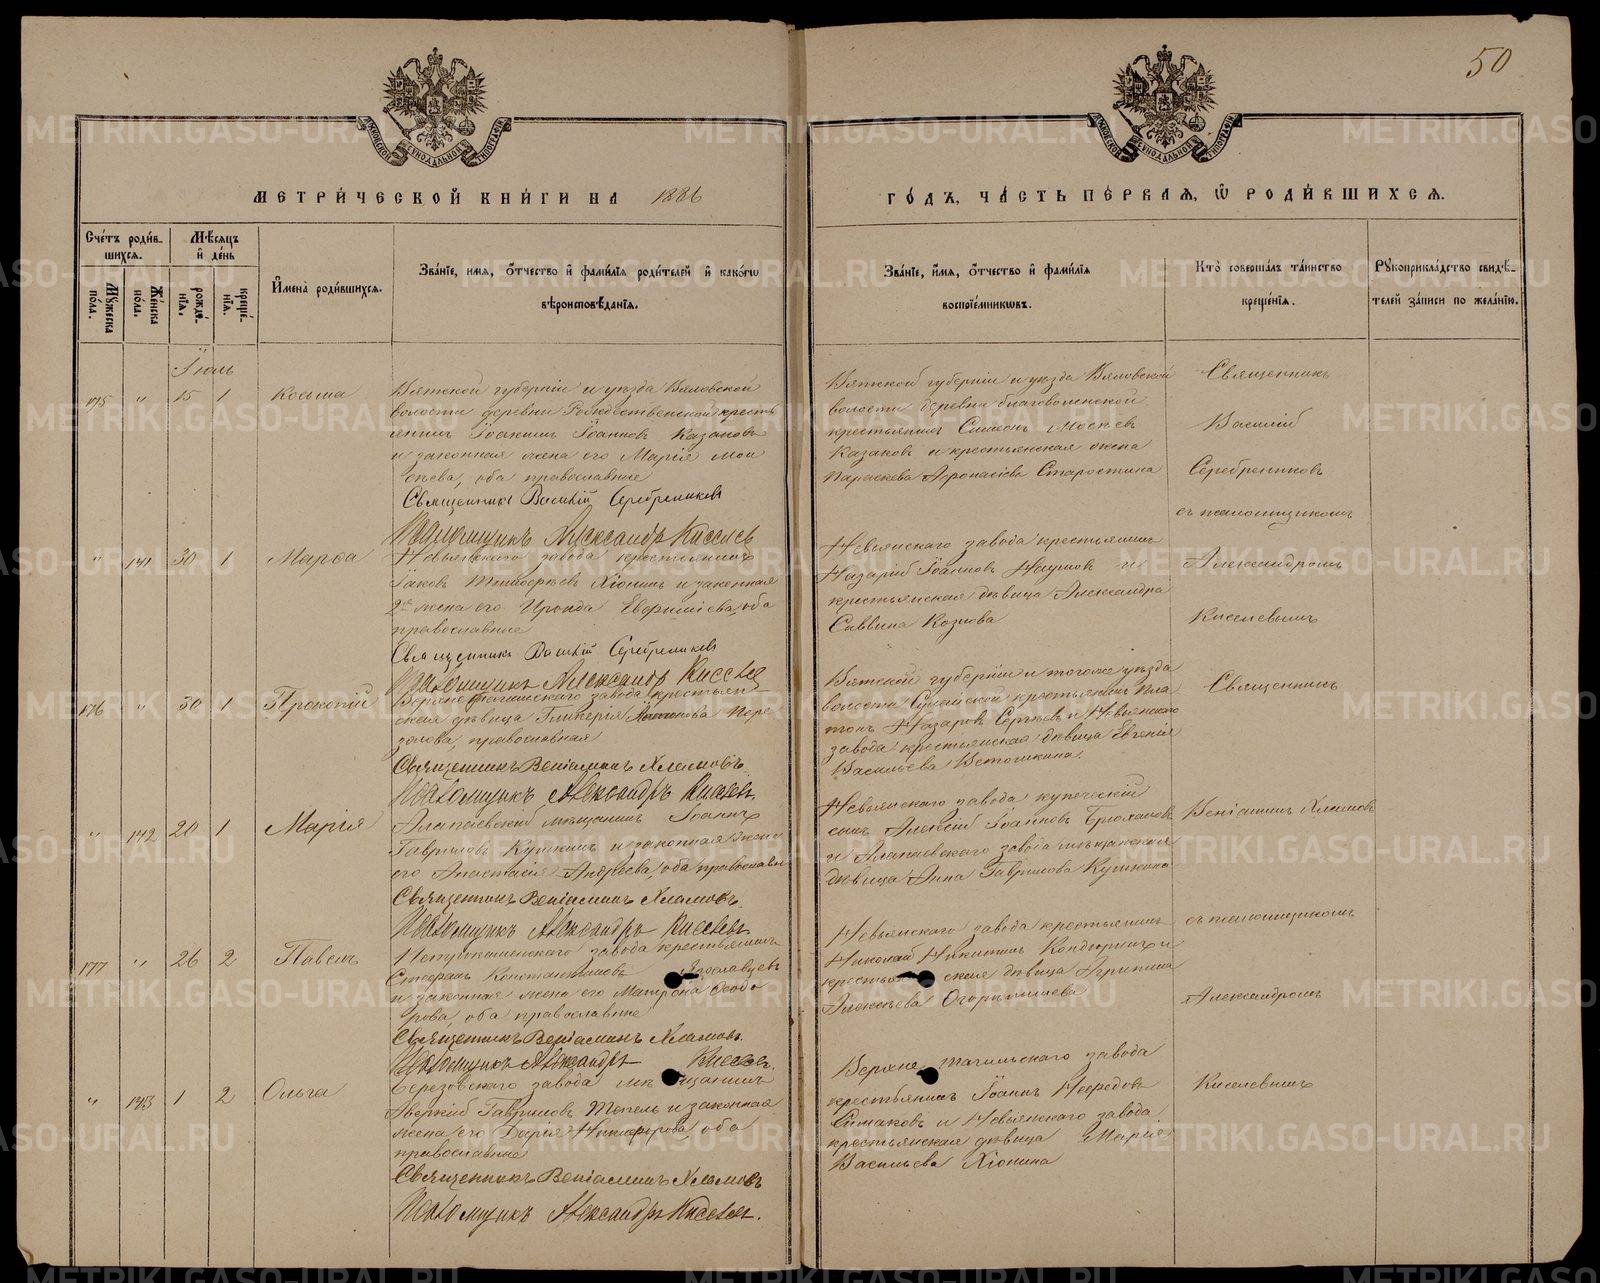 50
ДУХОВСКОЙ СѴНОДАЛЬНОЙ ТИПОГРАФІИ
МЕТРИ́ЧЕСКОЙ КНИ́ГИ НА 1886
ГО́ДЪ, ЧА́СТЬ ПЕ́РВАЯ, Ѡ РОДИ́ВШИХСЯ.
Сче́тъ роди́в-
шихся.
Му́жеска по́ла.
Же́нска по́ла.
Мѣ́сяцъ
и҆ де́нь
рожде́-
нїя.
креще́-
нїя.
И҆мена̀ роди́вшихся.
Зва́нїе, и҆мя, ѻ҆́тчество и҆ фами́лїя роди́телей и҆ како́гѡ
вѣроисповѣ́данїя.
Зва́нїе, и҆́мя, ѻ҆́тчество и҆ фами́лїя
воспрїе́мникѡвъ.
Кто̀ соверша́лъ та́инство
креще́нїя.
Рꙋкоприкла́дство свидѣ́-
телей за́писи по жела́нїю.
Іюль
175 " 15 1 Косьма
Вятской губерніи и уѣзда Вяловской
волости деревни Рождественской кресть
янинъ Іоакимъ Іоанновъ Казаковъ
и законная жена его Марія Мои
сеева, оба православные
Священникъ Василій Серебрениковъ
Псаломщикъ Александръ Киселевъ
Вятской губерніи и уѣзда Вяловской
волости деревни благоволенской
крестьянинъ Симеонъ Мосеевъ
Казаковъ и крестьянская жена
Параскева Афонасіева Старостина
Священникъ
Василій
Серебрениковъ
съ псаломщикомъ
Александромъ
Киселевымъ
" 141 30 1 Марѳа
Невьянскаго завода крестьянинъ
Іаковъ Тимофеевъ Хіонинъ и законная
2я жена его Ироида Евфиміева, оба
православные
Священникъ Василій Серебрениковъ
Псаломщикъ Александръ Киселевъ
Невьянскаго завода крестьянинъ
Назарій Іоанновъ Наумовъ и
крестьянская дѣвица Александра
Саввина Козлова
176 " 30 1 Прокопій
Верхне-тагильскаго завода крестьян
ская дѣвица Гликерія Пере
золова, православная
Священникъ Веніаминъ Хламовъ.
Псаломщикъ Александръ Киселевъ.
Вятской губерніи и тогоже уѣзда
волости крестьянинъ Пла
тонъ Назаровъ Сергѣевъ и Невьянскаго
завода крестьянская дѣвица Евгенія
Васильева Ветошкина.
Священникъ
Веніаминъ Хламовъ
съ псаломщикомъ
Александромъ
Киселевымъ
" 142 20 1 Марія
Алапаевскій мѣщанинъ Іоаннъ
Гавриловъ Кункинъ и законная жена
его Анастасія Андреева, оба православные
Священникъ Веніаминъ Хламовъ.
Псаломщикъ Александръ Киселевъ.
Невьянскаго завода купеческій
сынъ Алексій Іоанновъ Брюхановъ
и Алапаевскаго завода мѣщанская
дѣвица Анна Гаврилова Кункина
177 " 26 2 Павелъ
Петрокаменскаго завода крестьянинъ
Стефанъ Константиновъ Ярославцевъ
и законная жена его Матрона Ѳеодо
рова, оба православные
Священникъ Веніаминъ Хламовъ.
Псаломщикъ Александръ Киселевъ.
Невьянскаго завода крестьянинъ
Николай Никитинъ Кондюринъ и
крестьянская дѣвица Агрипина
Алексѣева Огорышшева
" 143 1 2 Ольга
Березовскаго завода мѣщанинъ
Аверкій Гавриловъ Тепель и законная
жена его Дарія Никифорова, оба
православные
Священникъ Веніаминъ Хламовъ
Псаломщикъ Александръ Киселевъ.
Верхне-тагильскаго завода
крестьянинъ Іоаннъ Нефедовъ
Симаковъ и Невьянскаго завода
крестьянская дѣвица Марія
Васильева Хіонина
METRIKI.GASO-URAL.RU